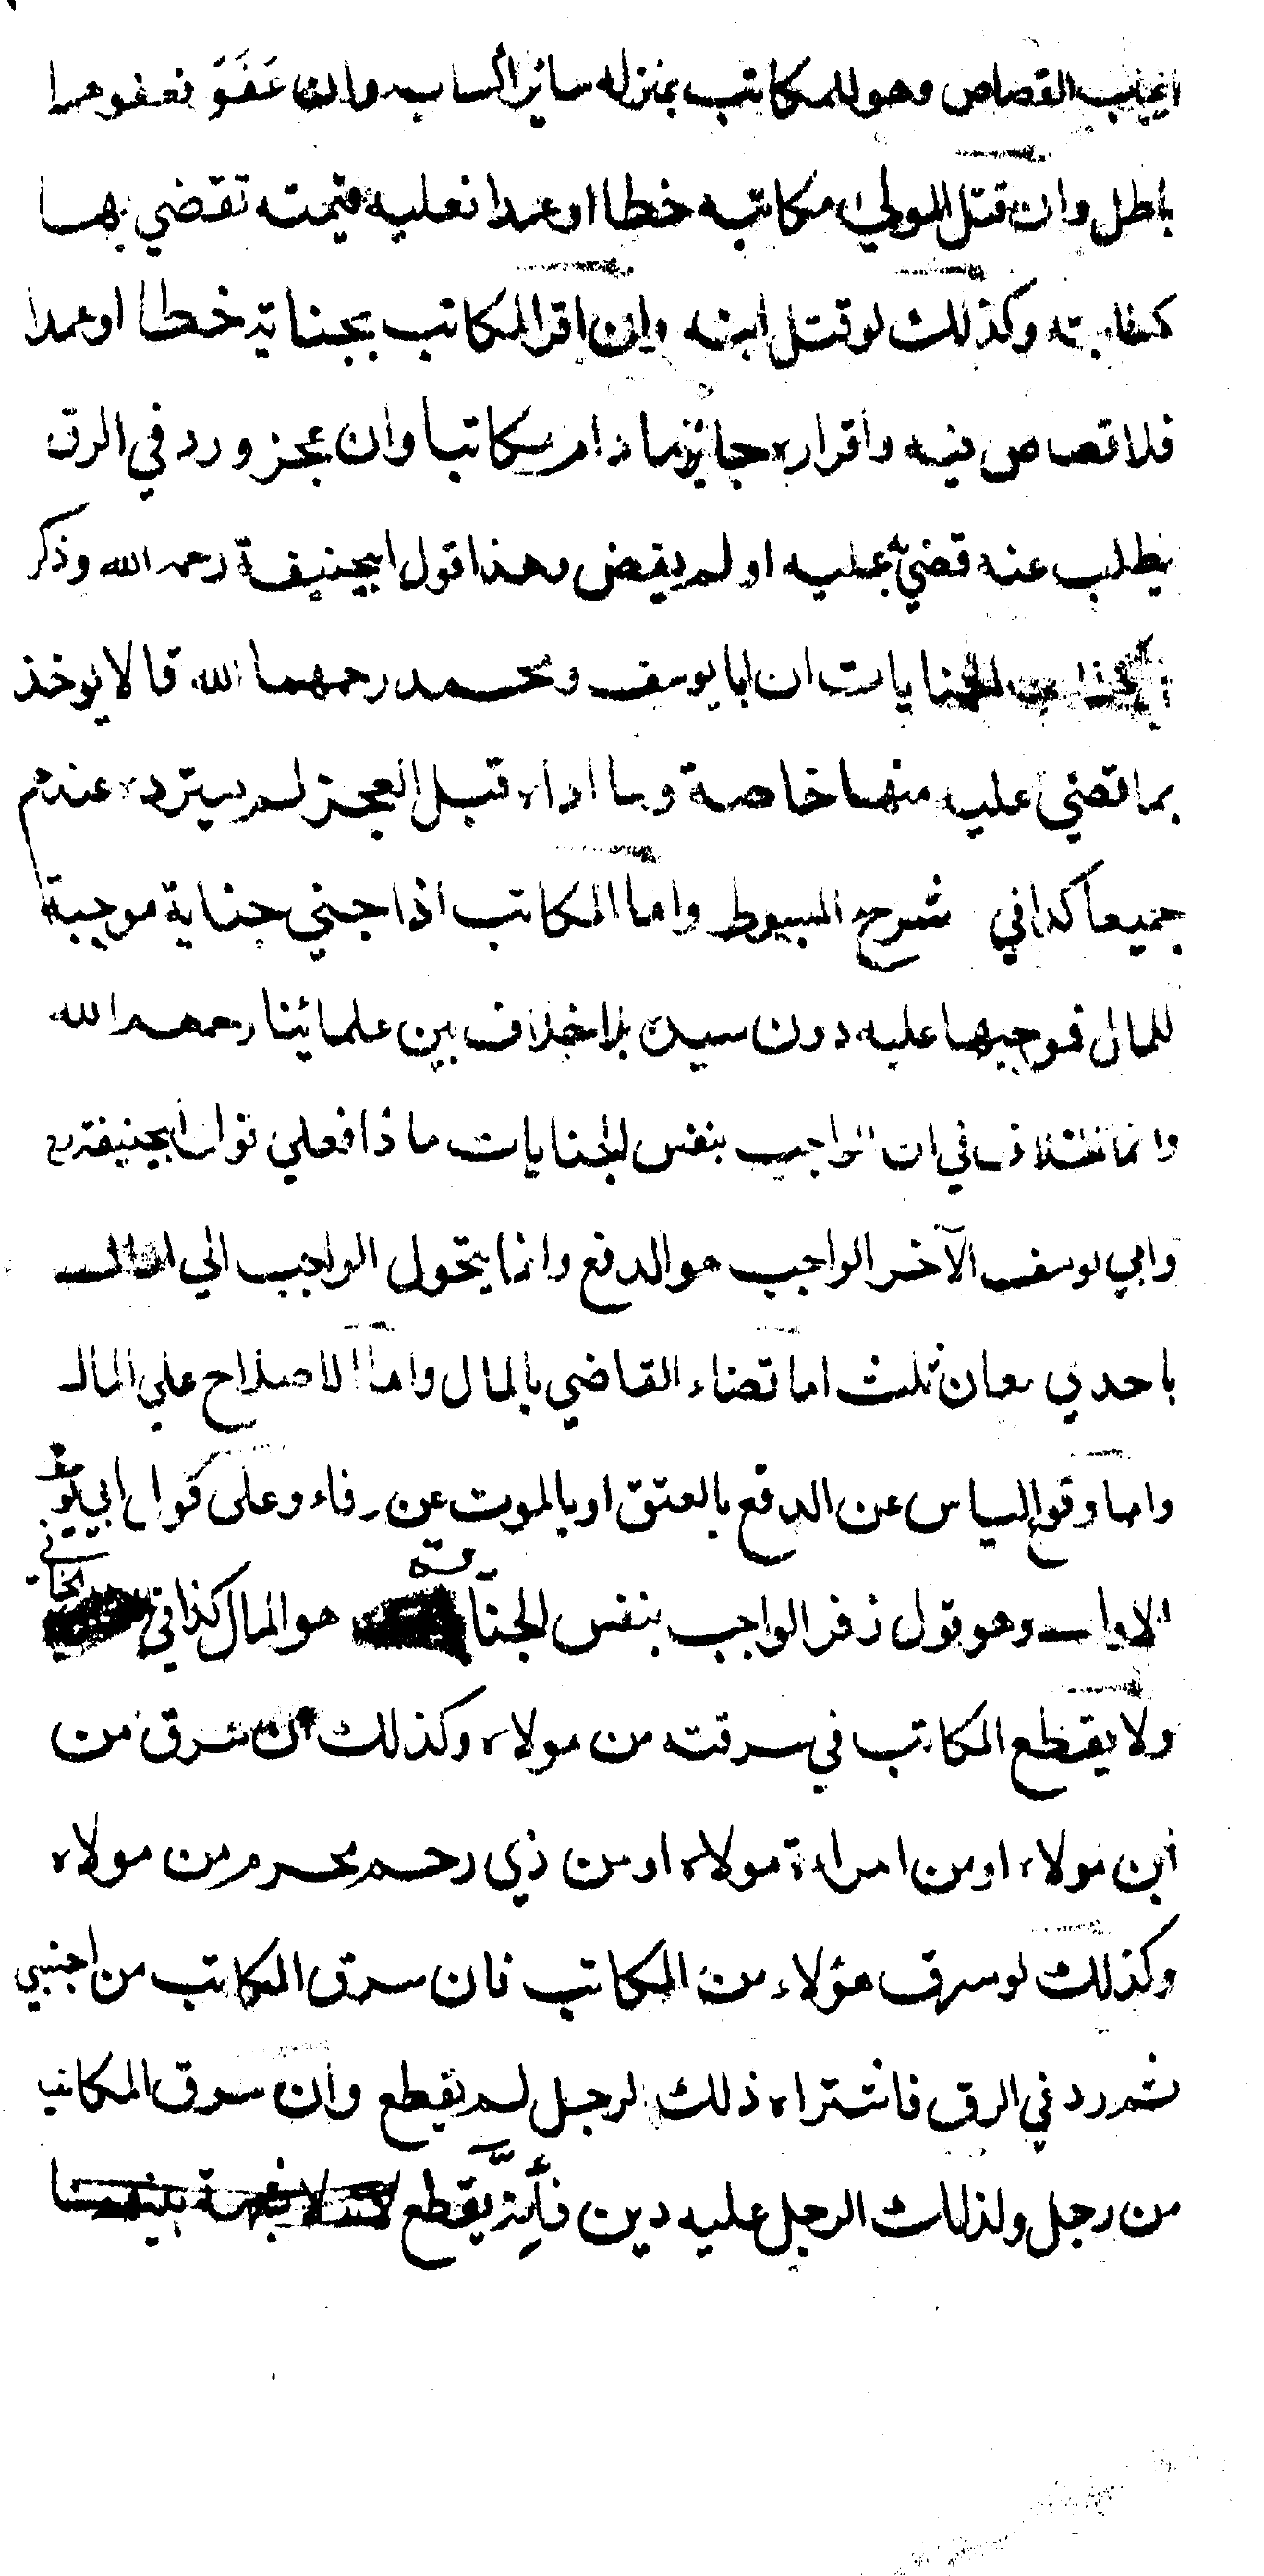 القصاص وهو للمكاتب بمنزله سائر اكسابه وان عَفَوَ فعفوهما
باطل وان قتل المولي مكاتبه خطا او عمدا فعليه قيمته تقضي بها
كتابته وكذلك لو قتل ابنه وان اقر المكاتب بجناية خطا او عمدا
فلا قصاص فيه واقراره جائز ما دام مكاتبا وان عجز ورد في الرق
بطل عنه قضي به عليه او لم يقض وهذا قول ابيحنيفة رحمه الله وذكر
الجنايات ان ابا يوسف ومحمد رحمهما الله قالا يوخذ
بما قضي عليه منها خاصة وما اداه قبل العجز لم يسترده عندهم
جميعا كذا في شرح المبسوط واما المكاتب اذا جني جناية موجبة
للمال فموجبها عليه دون سيده بلا خلاف بين علمائنا رحمهم الله
وانما في ان الواجب بنفس الجنايات ماذا فعلي قول ابيحنيفة رح
وابي يوسف الآخر الواجب هو الدفع وانما يتحول الواجب الي المال
باحدي معان ثلث اما قضاء القاضي بالمال واما الاصلاح علي المال
واما وقوع الياس عن الدفع بالعتق او بالموت عن وفاء وعلى قول ابي يوسف
الاول وهو قول زفر الواجب بنفس الجناية هو المال كذا في
ولا يقطع المكاتب في سرقته من مولاه وكذلك ان سرق من
ابن مولاه او من امراءة مولاه او من ذي رحم محرم من مولاه
وكذلك لو سرق هؤلاء من المكاتب فان سرق المكاتب من اجنبي
ثم رد في الرق فاشتراه ذلك الرجل لم يقطع وان سرق المكاتب
من رجل ولذلك الرجل عليه دين فانه يقطع